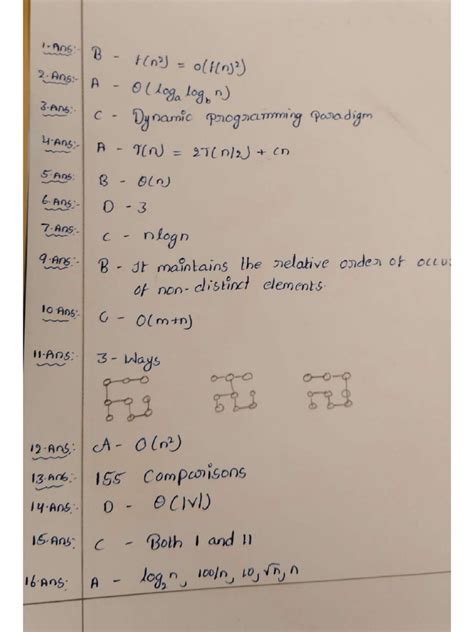 1·Ans:- B - f(n²) = O(f(n)²)
2·Ans:- A - Θ(logₐ log_b n)
3·Ans:- C - Dynamic programming Paradigm
4·Ans:- A - T(n) = 2T(n/2) + cn
5·Ans:- B - Θ(n)
6·Ans:- D - 3
7·Ans:- C - nlogn
9·Ans:- B - It maintains the relative order of occu
of non-distinct elements.
10·Ans:- C - O(m+n)
11·Ans:- 3 - Ways
12·Ans:- A - O(n²)
13·Ans:- 155 Comparisons
14·Ans:- D - Θ(|V|)
15·Ans:- C - Both I and II
16·Ans:- A - log₂n, 100/n, 10, √n, n